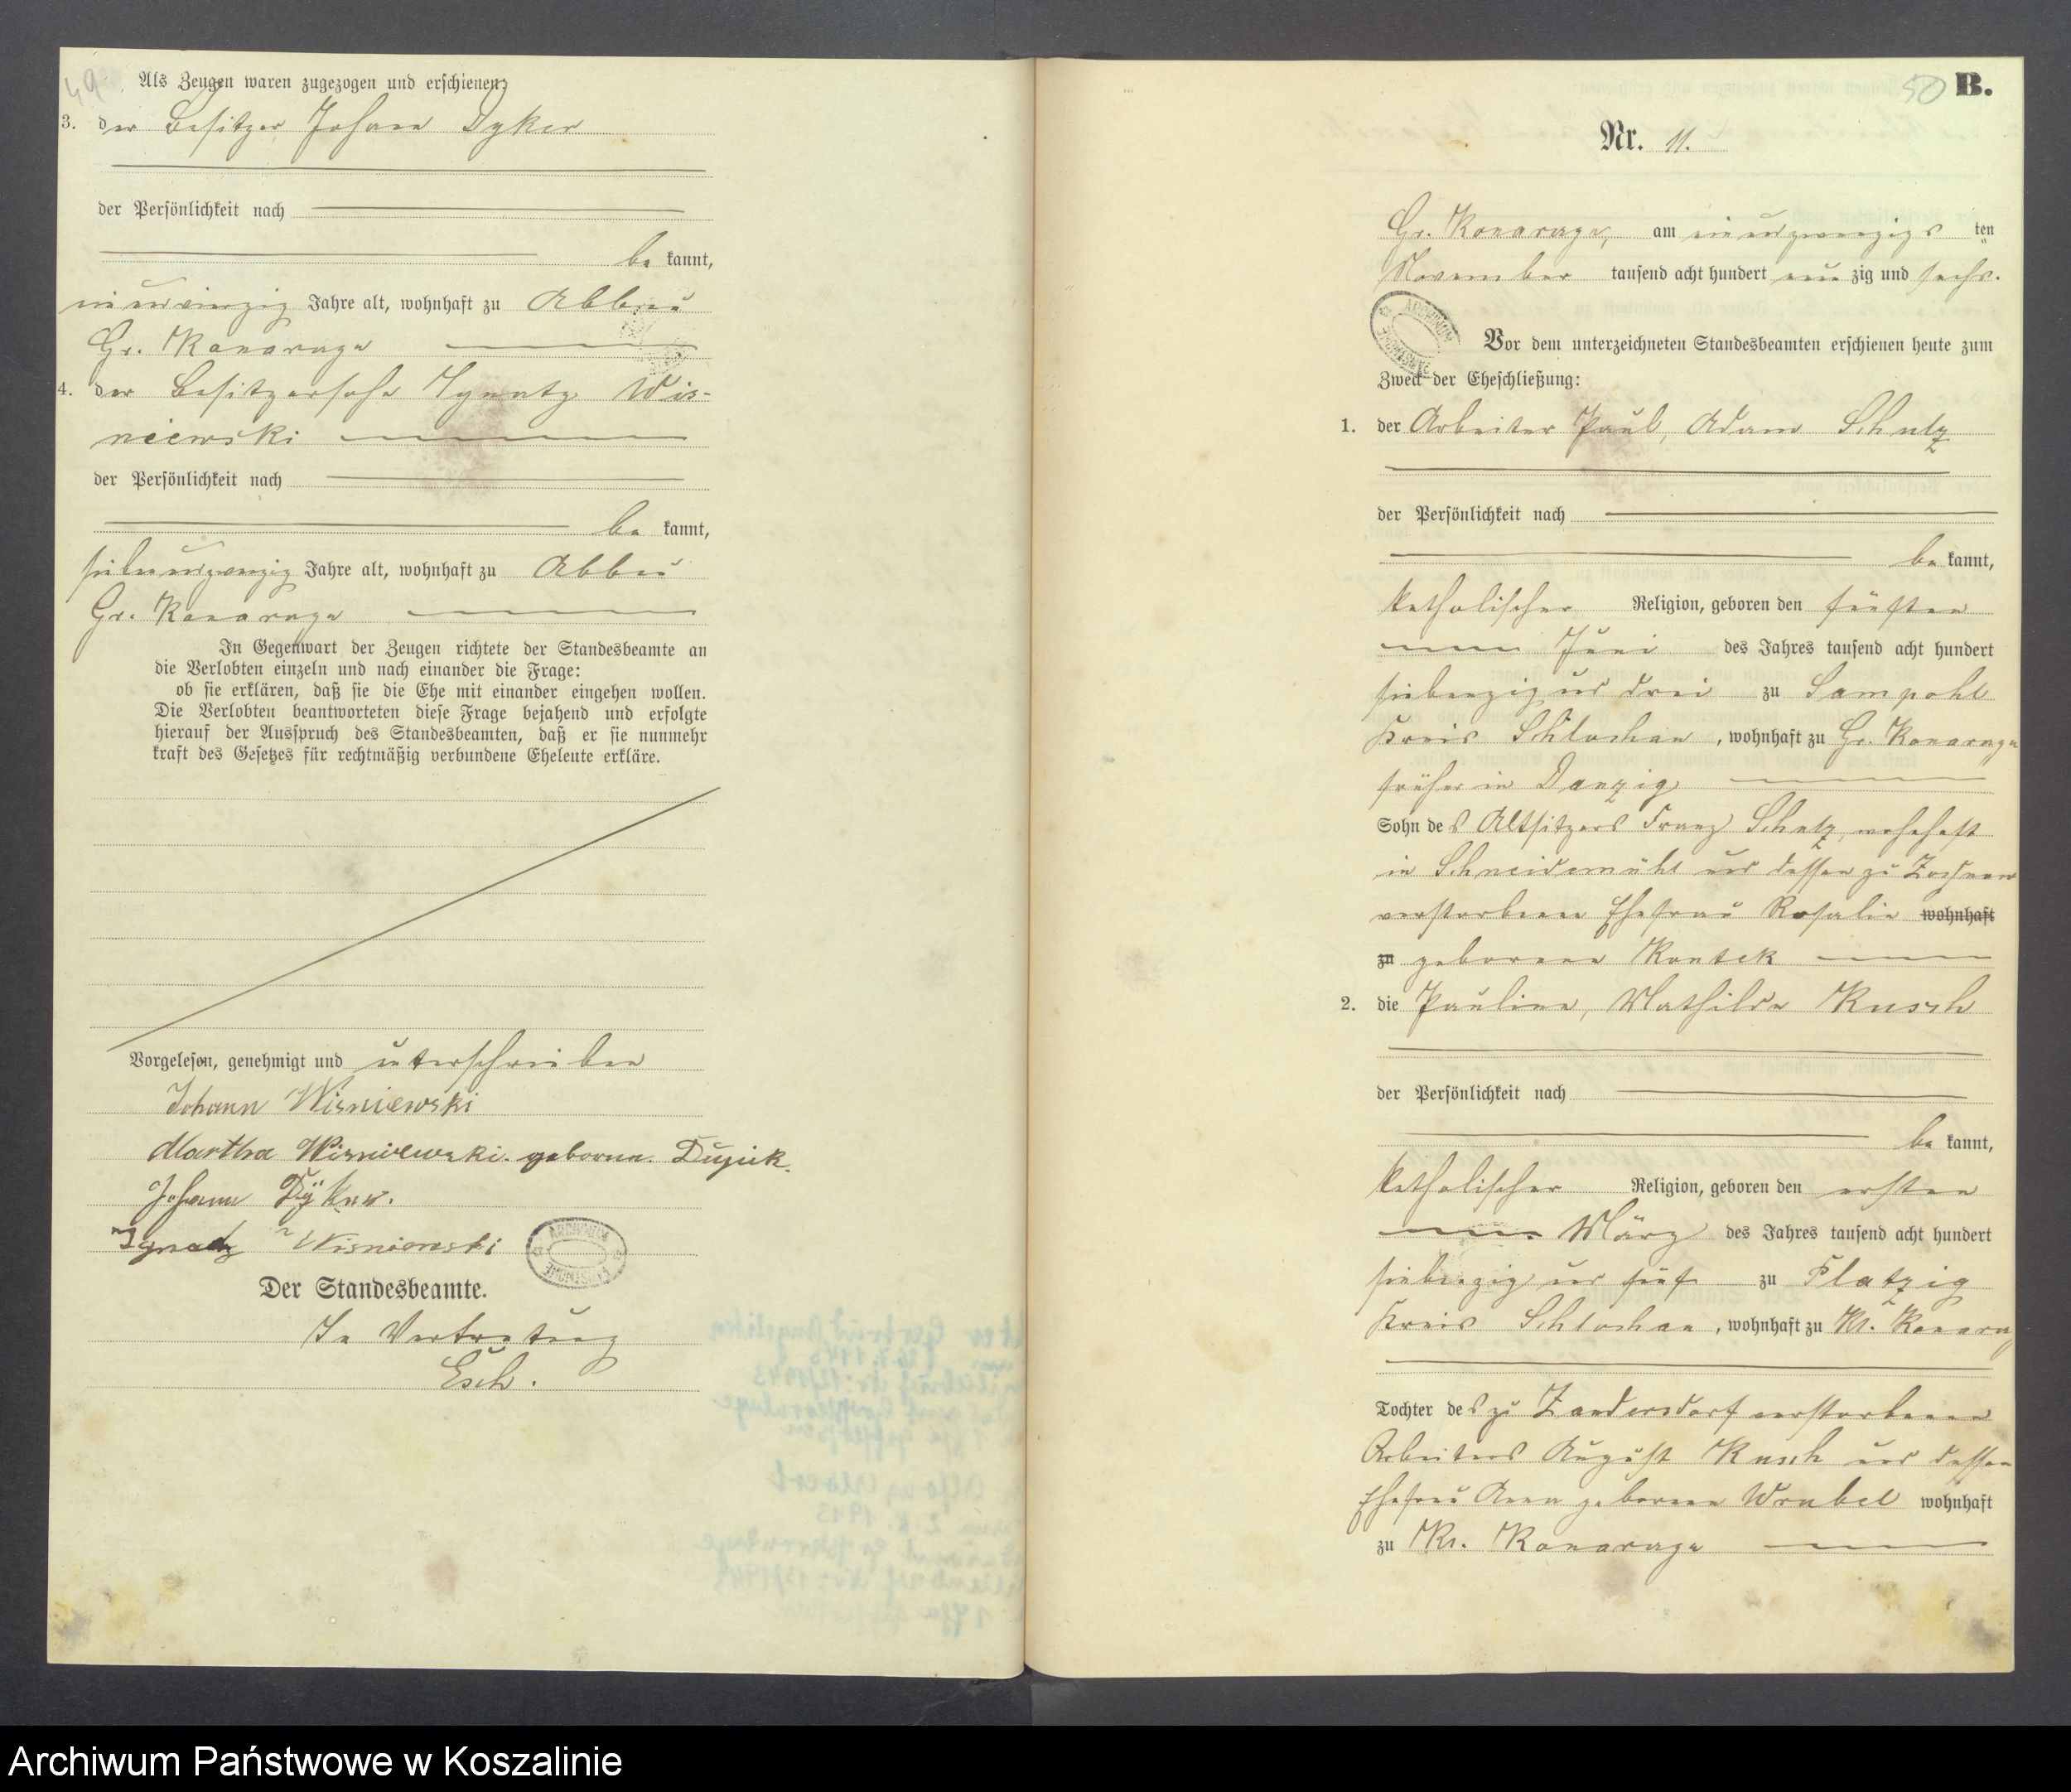 49
Als Zeugen waren zugezogen und erschienen:
3. der Besitzer Johann Dyker
der Persönlichkeit nach
be kannt,
einundvierzig Jahre alt, wohnhaft zu Abbau
Gr. Konarzyn
4. der Besitzersohn Ignatz Wis-
niewski
der Persönlichkeit nach
be kannt,
siebenundzwanzig Jahre alt, wohnhaft zu Abbau
Gr. Konarzyn
In Gegenwart der Zeugen richtete der Standesbeamte an
die Verlobten einzeln und nach einander die Frage:
ob sie erklären, daß sie die Ehe mit einander eingehen wollen.
Die Verlobten beantworteten diese Frage bejahend und erfolgte
hierauf der Ausspruch des Standesbeamten, daß er sie nunmehr
kraft des Gesetzes für rechtmäßig verbundene Eheleute erkläre.
Vorgelesen, genehmigt und unterschrieben
Johann Wisniewski
Martha Wisniewski geborene
Johann Dyker.
Ignatz Wisniewski
ARCHIWUM PAŃSTWOWE
Der Standesbeamte.
In Vertretung
Esch.
50 B.
Nr. 11.
Gr. Konarzyn, am einundzwanzigs ten
November tausend acht hundert neun zig und sechs.
ARCHIWUM PAŃSTWOWE
Vor dem unterzeichneten Standesbeamten erschienen heute zum
Zweck der Eheschließung:
1. der Arbeiter Paul, Adam Schulz
der Persönlichkeit nach
be kannt,
katholischer Religion, geboren den fünften
Juni des Jahres tausend acht hundert
siebenzig und drei zu Sampohl
Kreis Schlochau, wohnhaft zu Gr. Konarzyn
früher in Danzig
Sohn des Altsitzers Franz Schulz, wohnhaft
in Schneidemühl und dessen zu
verstorbenen Ehefrau Rosalie wohnhaft
zu geborenen Kontek
2. die Pauline, Mathilde Kusch
der Persönlichkeit nach
be kannt,
katholischer Religion, geboren den ersten
März des Jahres tausend acht hundert
siebenzig und fünf zu Platzig
Kreis Schlochau, wohnhaft zu Kl. Konarzyn
Tochter des zu Zandersdorf verstorbenen
Arbeiters August Kusch und dessen
Ehefrau Anna geborenen Wrubel wohnhaft
zu Kl. Konarzyn
Archiwum Państwowe w Koszalinie